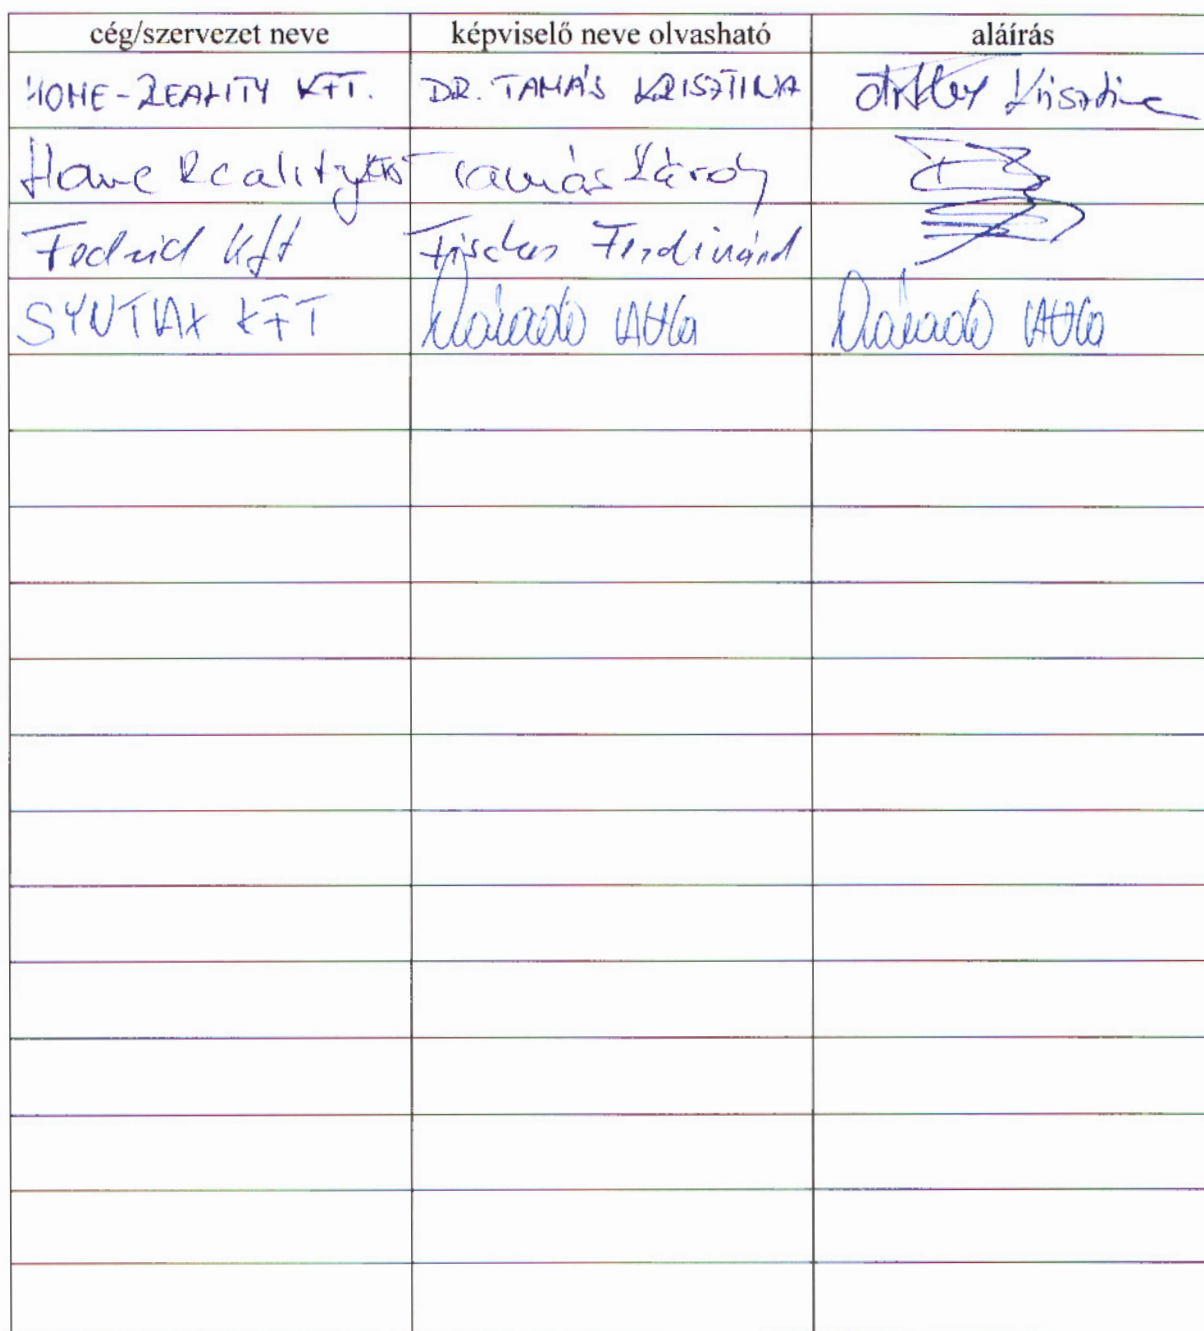 cég/szervezet neve képviselő neve olvasható aláírás
HOME-REALITY KFT. DR. TAMÁS KRISZTINA Krisztina
Home Reality Kft Tamás Károly
Kft Fischer Ferdinánd
SYNTAX KFT Attila Attila